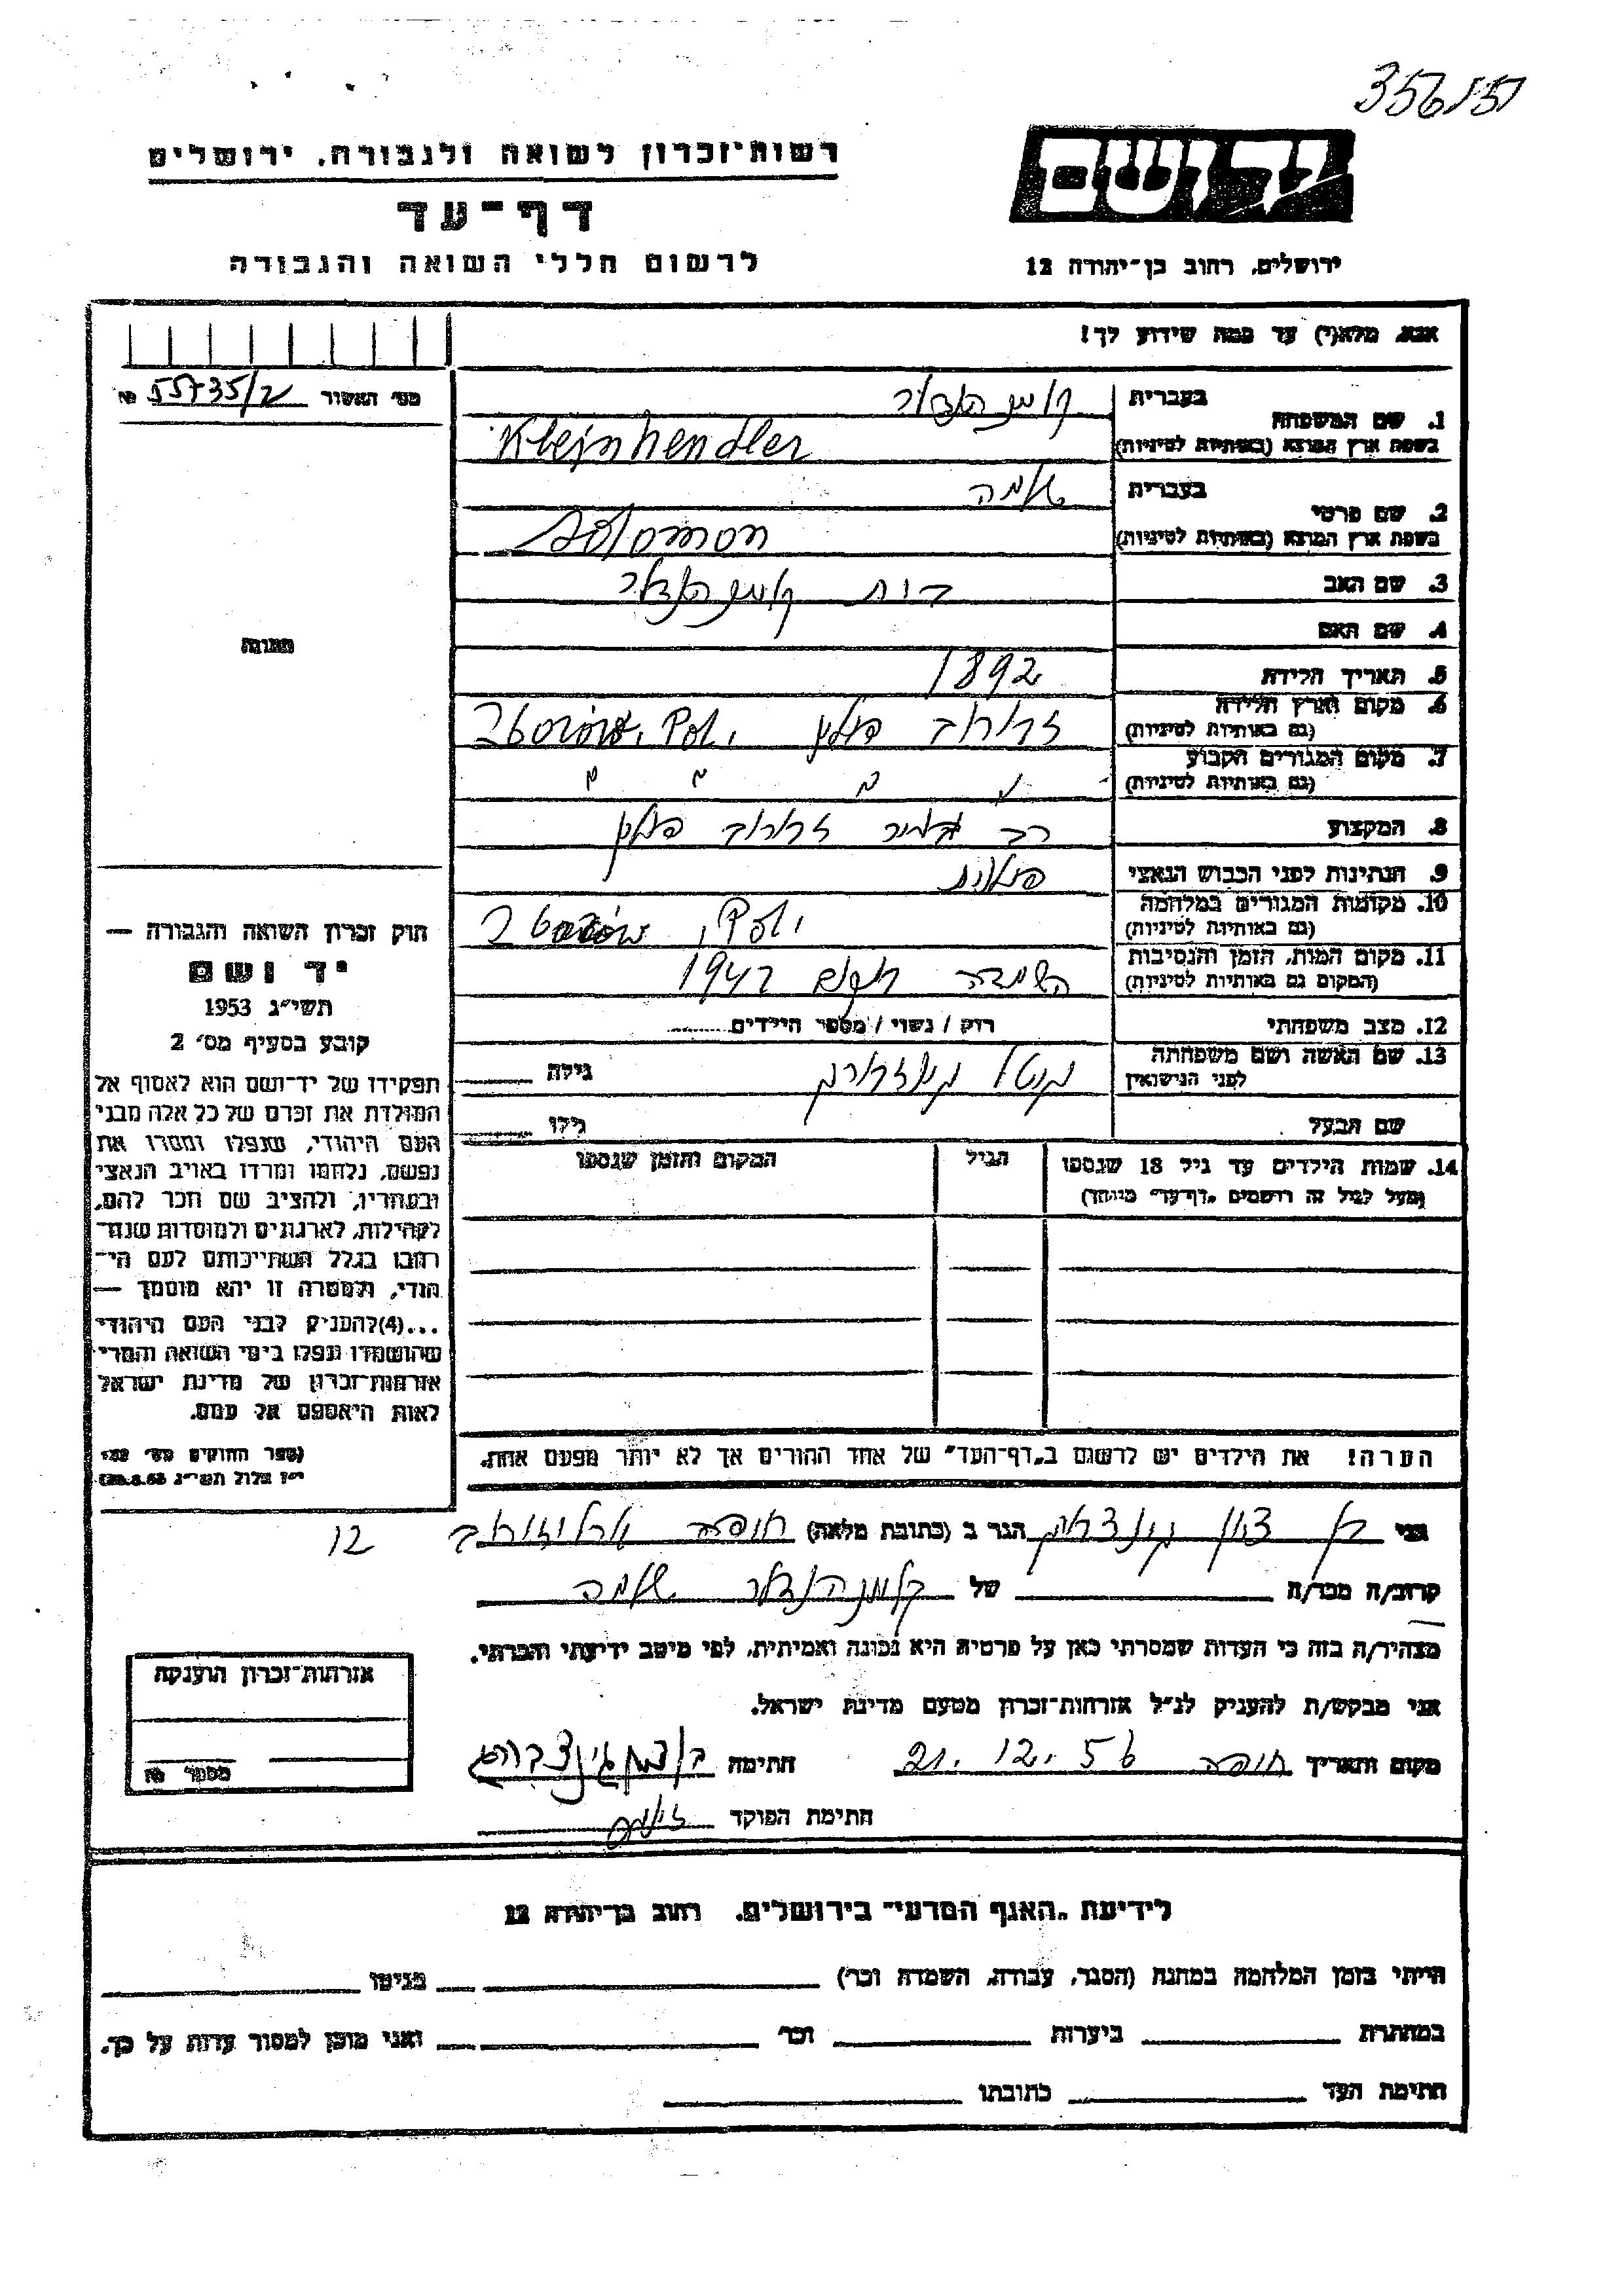 356/51
רשות־זכרון לשואה ולגבורה, ירושלים
יד ושם
דף־עד
לרשום חללי השואה והגבורה
ירושלים, רחוב בן־יהודה 12
אנא, מלא(י) עד כמה שידוע לך!
מס׳ האשור 55735/2 №
1. שם המשפחה
בעברית קליינהנדלר
בשפת ארץ המוצא (באותיות לטיניות) Kleinhendler
2. שם פרטי
בעברית שלמה
בשפת ארץ המוצא (באותיות לטיניות) Solomon
3. שם האב קליינהנדלר
4. שם האם
תמונה
5. תאריך הלידה 1892
6. מקום וארץ הלידה
(גם באותיות לטיניות) זבורוב פולין Zborów, Pol.
7. מקום המגורים הקבוע
(גם באותיות לטיניות) " " " "
8. המקצוע רב זבורוב פולין
9. הנתינות לפני הכבוש הנאצי פולנית
10. מקומות המגורים במלחמה
(גם באותיות לטיניות) Zborów, Pol.
11. מקום המות, הזמן והנסיבות
(המקום גם באותיות לטיניות) השמדה 1942
12. מצב משפחתי רוק / נשוי / מספר הילדים........
13. שם האשה ושם משפחתה
לפני הנישואין גינזבורג גילה
שם הבעל גילו
14. שמות הילדים עד גיל 18 שנספו
(מעל לגיל זה רושמים „דף־עד" מיוחד)
הגיל
המקום והזמן שנספו
חוק זכרון השואה והגבורה —
יד ושם
תשי״ג 1953
קובע בסעיף מס׳ 2
תפקידו של יד־ושם הוא לאסוף אל
המולדת את זכרם של כל אלה מבני
העם היהודי, שנפלו ומסרו את
נפשם, נלחמו ומרדו באויב הנאצי
ובעוזריו, ולהציב שם וזכר להם,
לקהילות, לארגונים ולמוסדות שנח־
רבו בגלל השתייכותם לעם הי־
הודי, ולמטרה זו יהא מוסמך —
...(4)להעניק לבני העם היהודי
שהושמדו ונפלו בימי השואה והמרי
אזרחות־זכרון של מדינת ישראל
לאות היאספם אל עמם.
(ספר החוקים מס׳ 132
י״ז אלול תשי״ג 28.8.53)
הערה! את הילדים יש לרשום ב„דף־העד" של אחד ההורים אך לא יותר מפעם אחת.
אני בן ציון גינצברג הגר ב (כתובת מלאה) חיפה ארלוזורוב 12
קרוב/ה מכר/ה של קליינהנדלר שלמה
מצהיר/ה בזה כי העדות שמסרתי כאן על פרטיה היא נכונה ואמיתית, לפי מיטב ידיעתי והכרתי.
אני מבקש/ת להעניק לנ״ל אזרחות־זכרון מטעם מדינת ישראל.
מקום ותאריך חיפה 21.12.56 חתימה בן ציון גינצברג
חתימת הפוקד
אזרחות־זכרון הוענקה
מספר №
לידיעת „האגף המדעי" בירושלים, רחוב בן־יהודה 12
הייתי בזמן המלחמה במחנה (הסגר, עבודה, השמדה וכו׳) בגיטו
במחתרת ביערות וכו׳ ואני מוכן למסור עדות על כך.
חתימת העד כתובתו